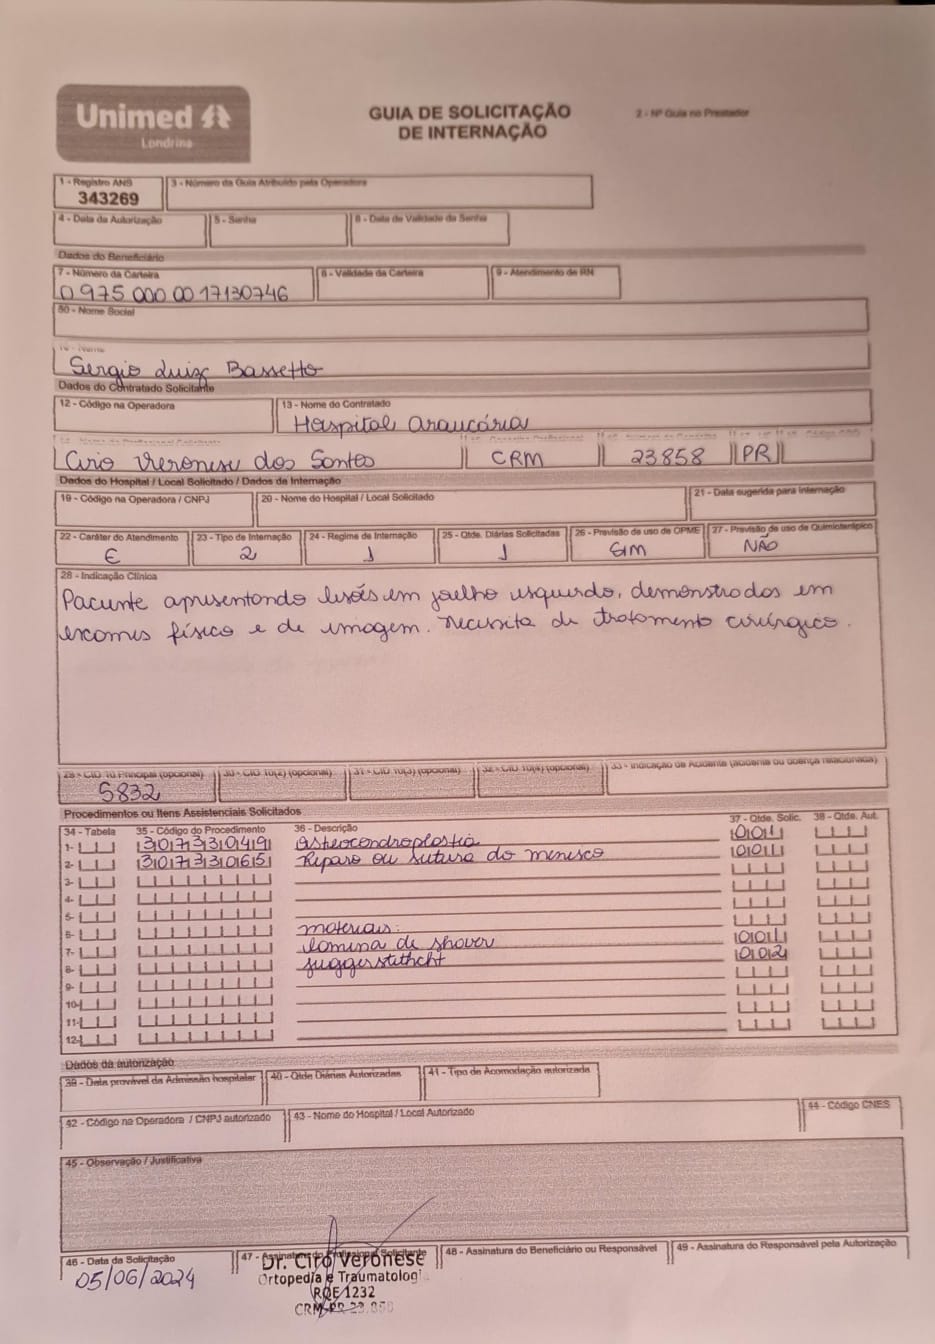 Unimed
Londrina
GUIA DE SOLICITAÇÃO
DE INTERNAÇÃO
2 - Nº Guia no Prestador
1 - Registro ANS
343269
3 - Número da Guia Atribuído pela Operadora
4 - Data da Autorização
5 - Senha
6 - Data de Validade da Senha
Dados do Beneficiário
7 - Número da Carteira
0 975 000 00 17130746
8 - Validade da Carteira
9 - Atendimento de RN
50 - Nome Social
Nome
Sergio Luiz Bassetto
Dados do Contratado Solicitante
12 - Código na Operadora
13 - Nome do Contratado
Hospital Araucária
Ciro Veronese dos Santos
CRM
23858
PR
Dados do Hospital / Local Solicitado / Dados da Internação
19 - Código na Operadora / CNPJ
20 - Nome do Hospital / Local Solicitado
21 - Data sugerida para internação
22 - Caráter do Atendimento
E
23 - Tipo de Internação
2
24 - Regime de Internação
1
25 - Qtde. Diárias Solicitadas
1
26 - Previsão de uso de OPME
SIM
27 - Previsão de uso de Quimioterápico
NÃO
28 - Indicação Clínica
Paciente apresentando lesões em joelho esquerdo, demonstrados em
exames físico e de imagem. Necessita de tratamento cirúrgico.
29 - CID 10 Principal (opcional)
S832
30 - CID 10(2) (opcional)
31 - CID 10(3) (opcional)
32 - CID 10(4) (opcional)
33 - Indicação de Acidente (acidente ou doença relacionada)
Procedimentos ou Itens Assistenciais Solicitados
34 - Tabela
35 - Código do Procedimento
36 - Descrição
37 - Qtde. Solic.
38 - Qtde. Aut.
1- 30733049 osteocondroplastia 001
2- 30733065 Reparo ou sutura do menisco 001
3-
4-
5-
6- materiais:
7- lamina de shaver 001
8- juggerstithcht 002
9-
10-
11-
12-
Dados da autorização
39 - Data provável da Admissão hospitalar
40 - Qtde Diárias Autorizadas
41 - Tipo de Acomodação autorizada
42 - Código na Operadora / CNPJ autorizado
43 - Nome do Hospital / Local Autorizado
44 - Código CNES
45 - Observação / Justificativa
46 - Data da Solicitação
05/06/2024
47 - Assinatura do Profissional Solicitante
Dr. Ciro Veronese
Ortopedia e Traumatologi
RQE 1232
CRM-PR 23.858
48 - Assinatura do Beneficiário ou Responsável
49 - Assinatura do Responsável pela Autorização